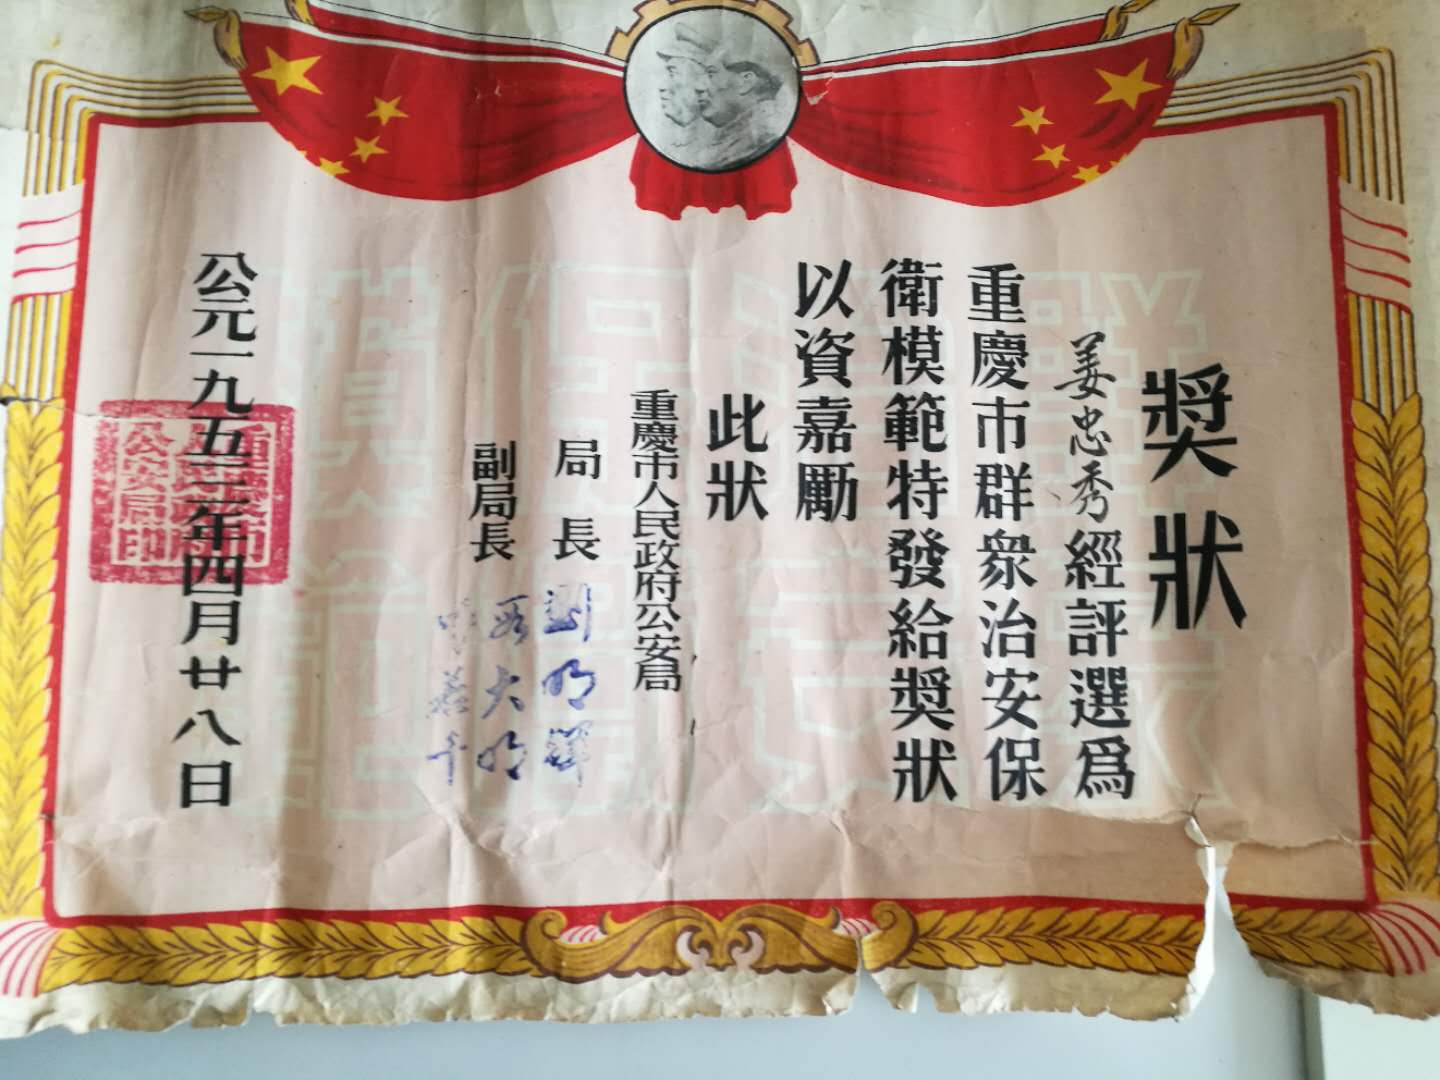 獎狀
姜忠秀經評選爲
重慶市群衆治安保
衛模範特發給獎狀
以資嘉勵
此狀
重慶市人民政府公安局
局長 劉明輝
副局長 段大明
公元一九五三年四月廿八日